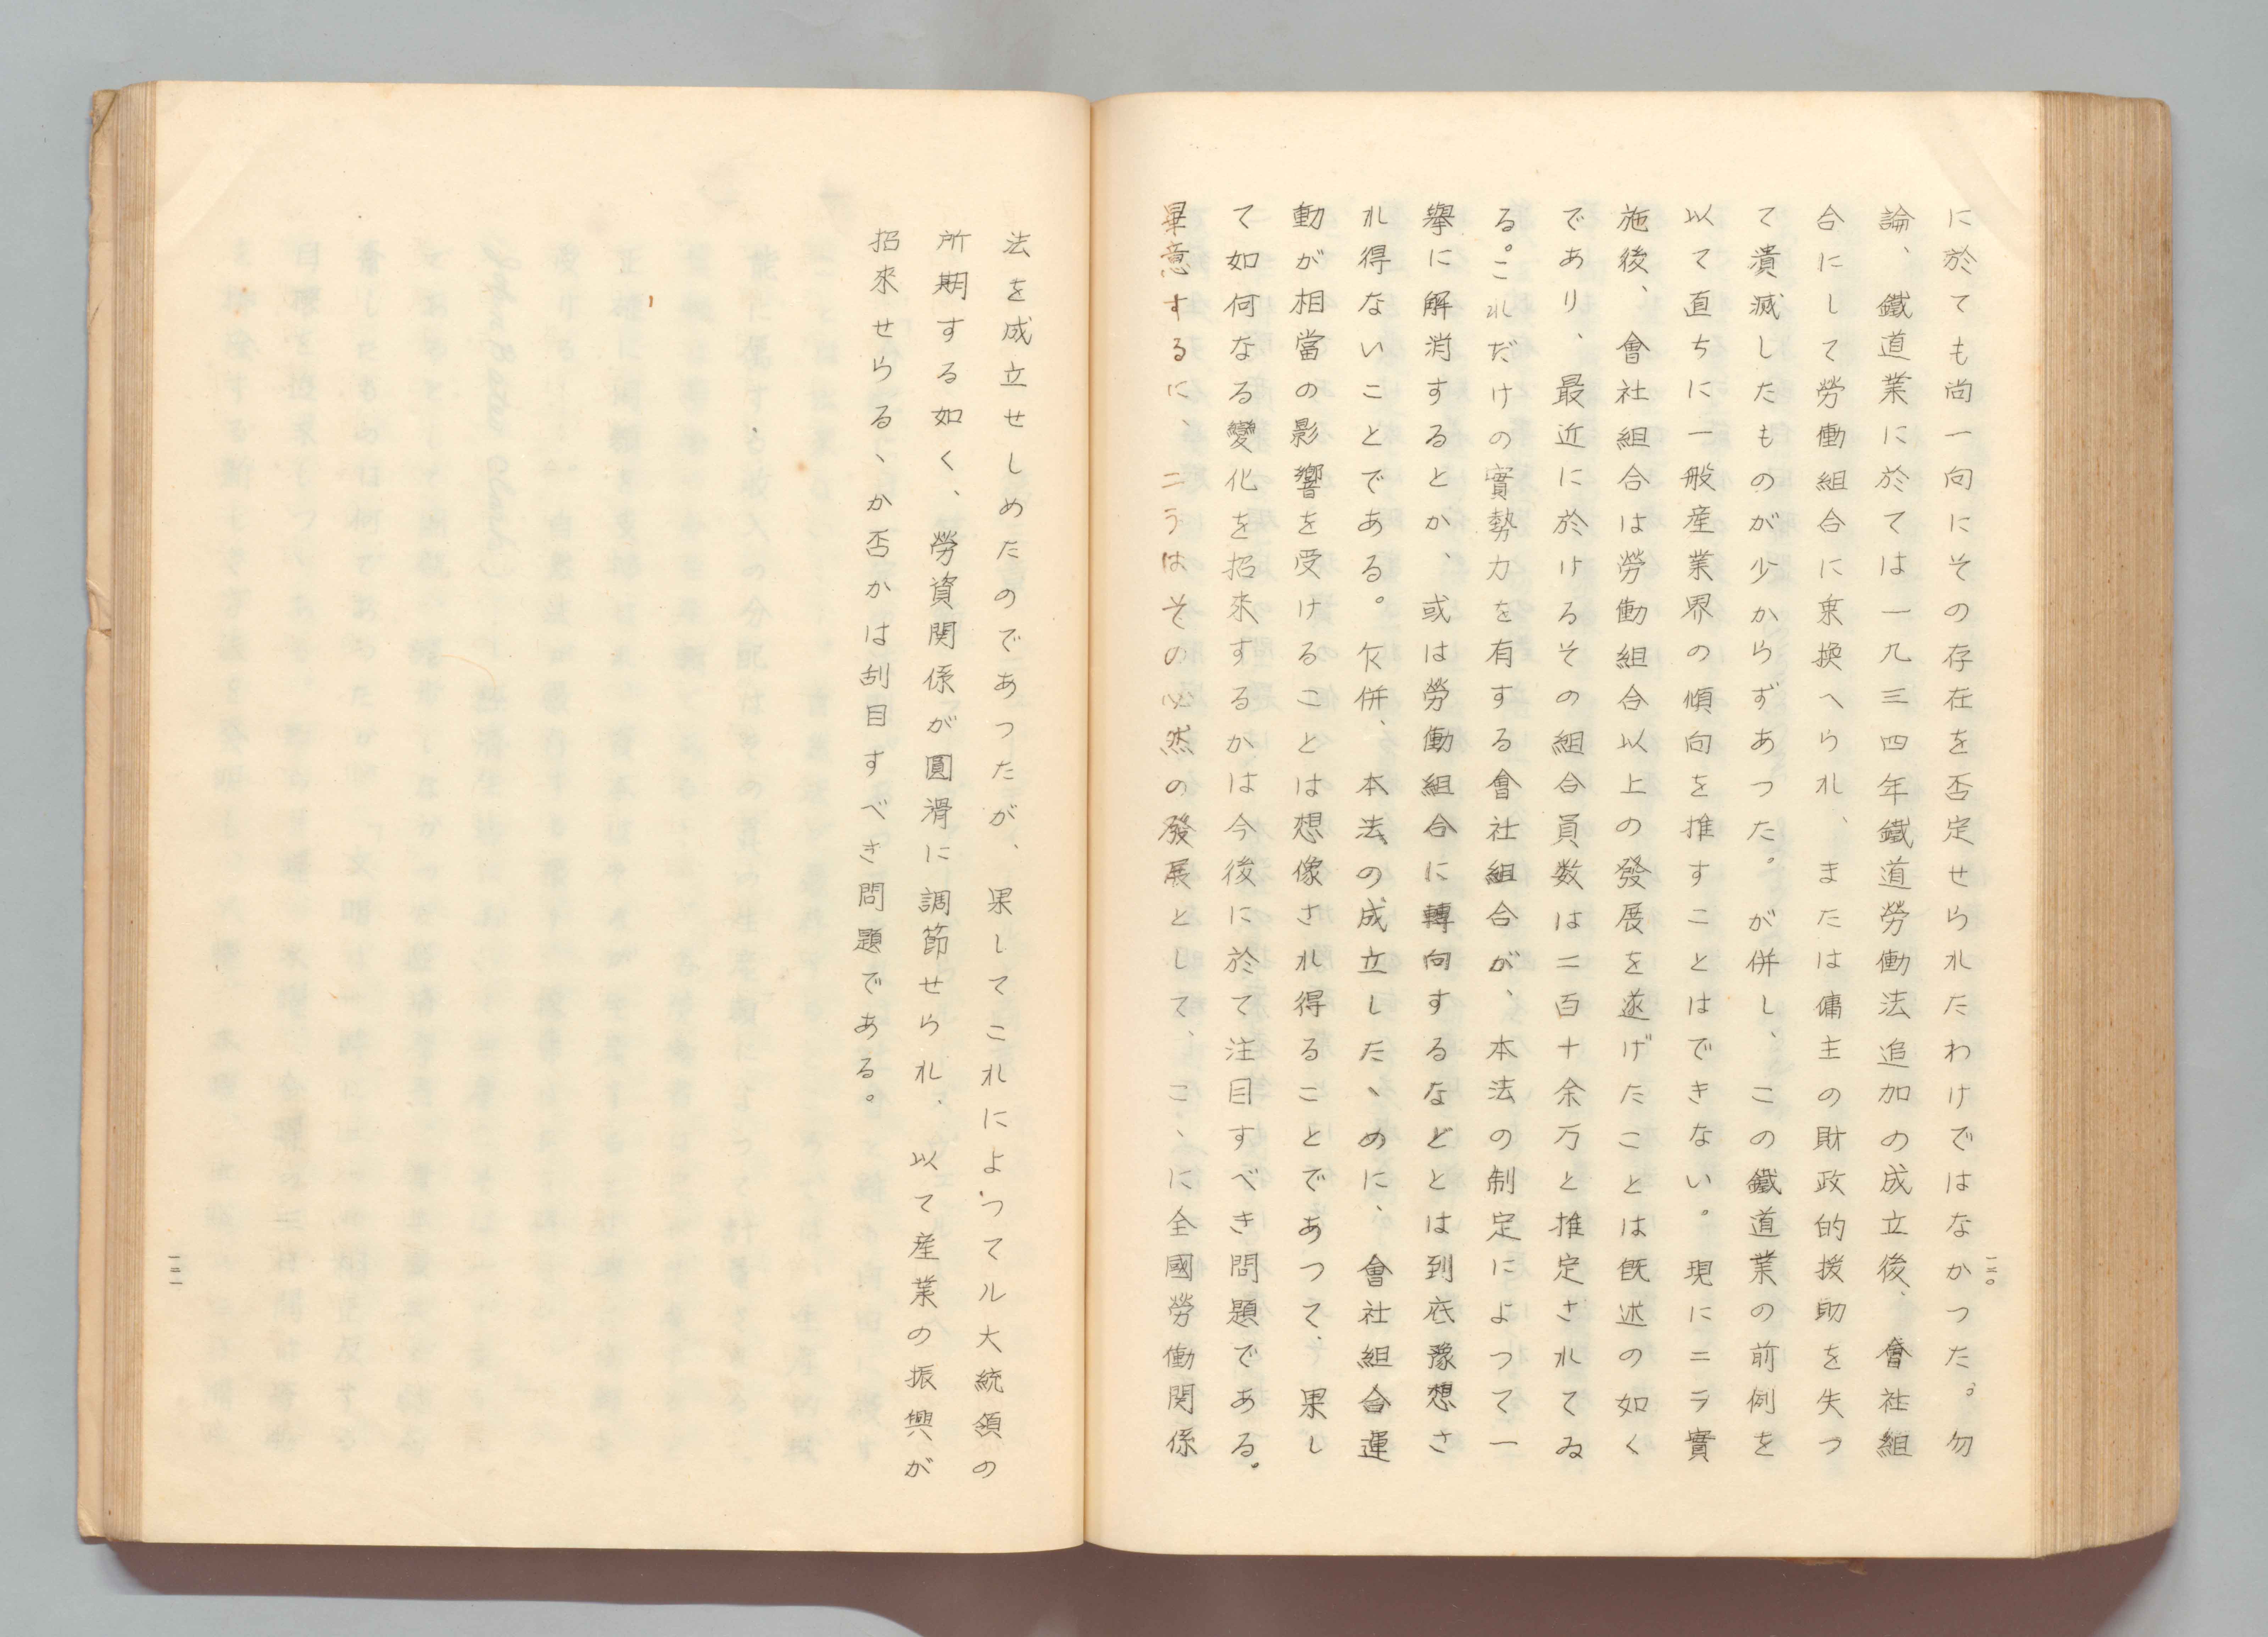 に於ても尚一向にその存在を否定せられたわけではなかつた。勿
論、鐵道業に於ては一九三四年鐵道勞働法追加の成立後、會社組
合にして勞働組合に乗換へられ、または傭主の財政的援助を失つ
て潰滅したものが少からずあつた。が併し、この鐵道業の前例を
以て直ちに一般産業界の傾向を推すことはできない。現にニラ實
施後、會社組合は勞働組合以上の發展を遂げたことは既述の如く
であり、最近に於けるその組合員数は二百十余万と推定されてゐ
る。これだけの實勢力を有する會社組合が、本法の制定によつて一
擧に解消するとか、或は勞働組合に轉向するなどとは到底豫想さ
れ得ないことである。仄併、本法の成立したゝめに、會社組合運
動が相當の影響を受けることは想像され得ることであつて、果し
て如何なる變化を招来するかは今後に於て注目すべき問題である。
畢意するに、ニうはその必然の發展として、こゝに全國勞働関係
一二〇
法を成立せしめたのであつたが、果してこれによつてル大統領の
所期する如く、勞資関係が圓滑に調節せられ、以て産業の振興が
招來せらるゝか否かは刮目すべき問題である。
一二一